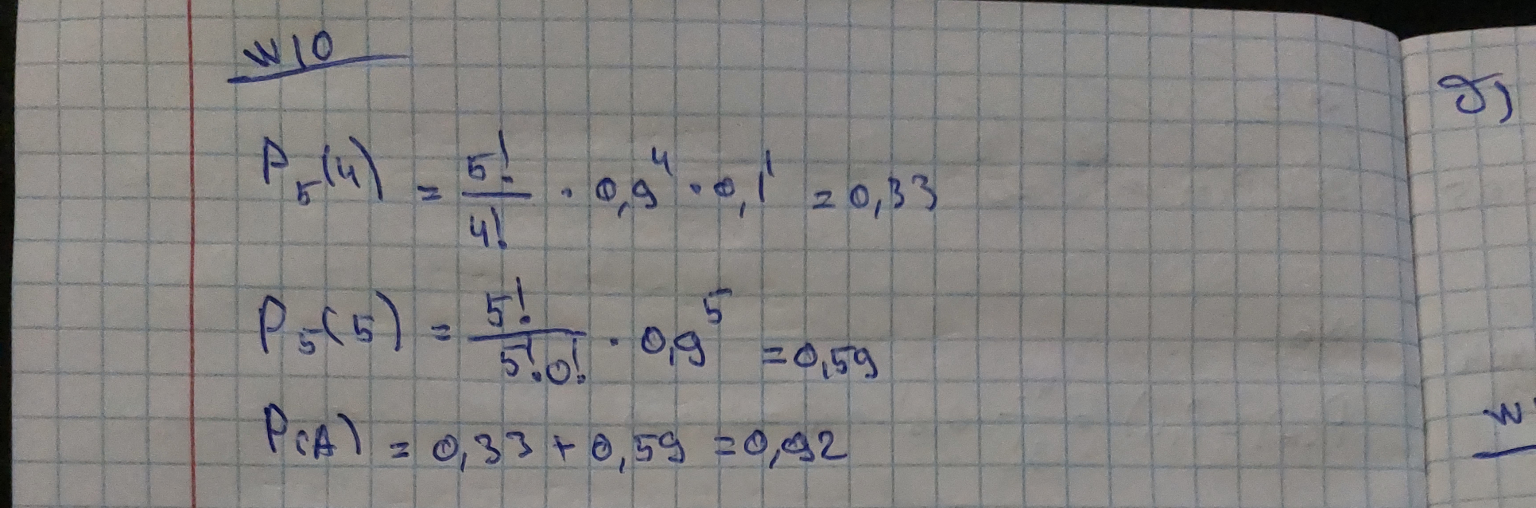 №10
P₅(4) = 5!/4! · 0,9⁴ · 0,1¹ = 0,33
P₅(5) = 5!/5!0! · 0,9⁵ = 0,59
P(A) = 0,33 + 0,59 = 0,92